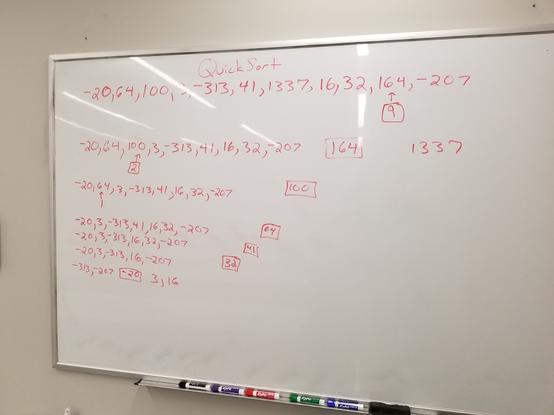 QuickSort
-20,64,100,3,-313,41,1337,16,32,164,-207
9
-20,64,100,3,-313,41,16,32,-207 164 1337
2
-20,64,3,-313,41,16,32,-207 100
1
-20,3,-313,41,16,32,-207 64
-20,3,-313,16,32,-207 41
-20,3,-313,16,-207 32
-313,-207 -20 3,16